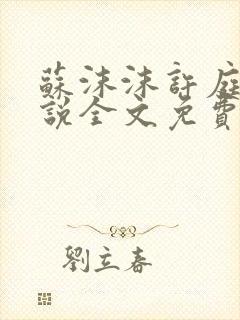 蘇沫沫許庭
說全文免費
劉立春